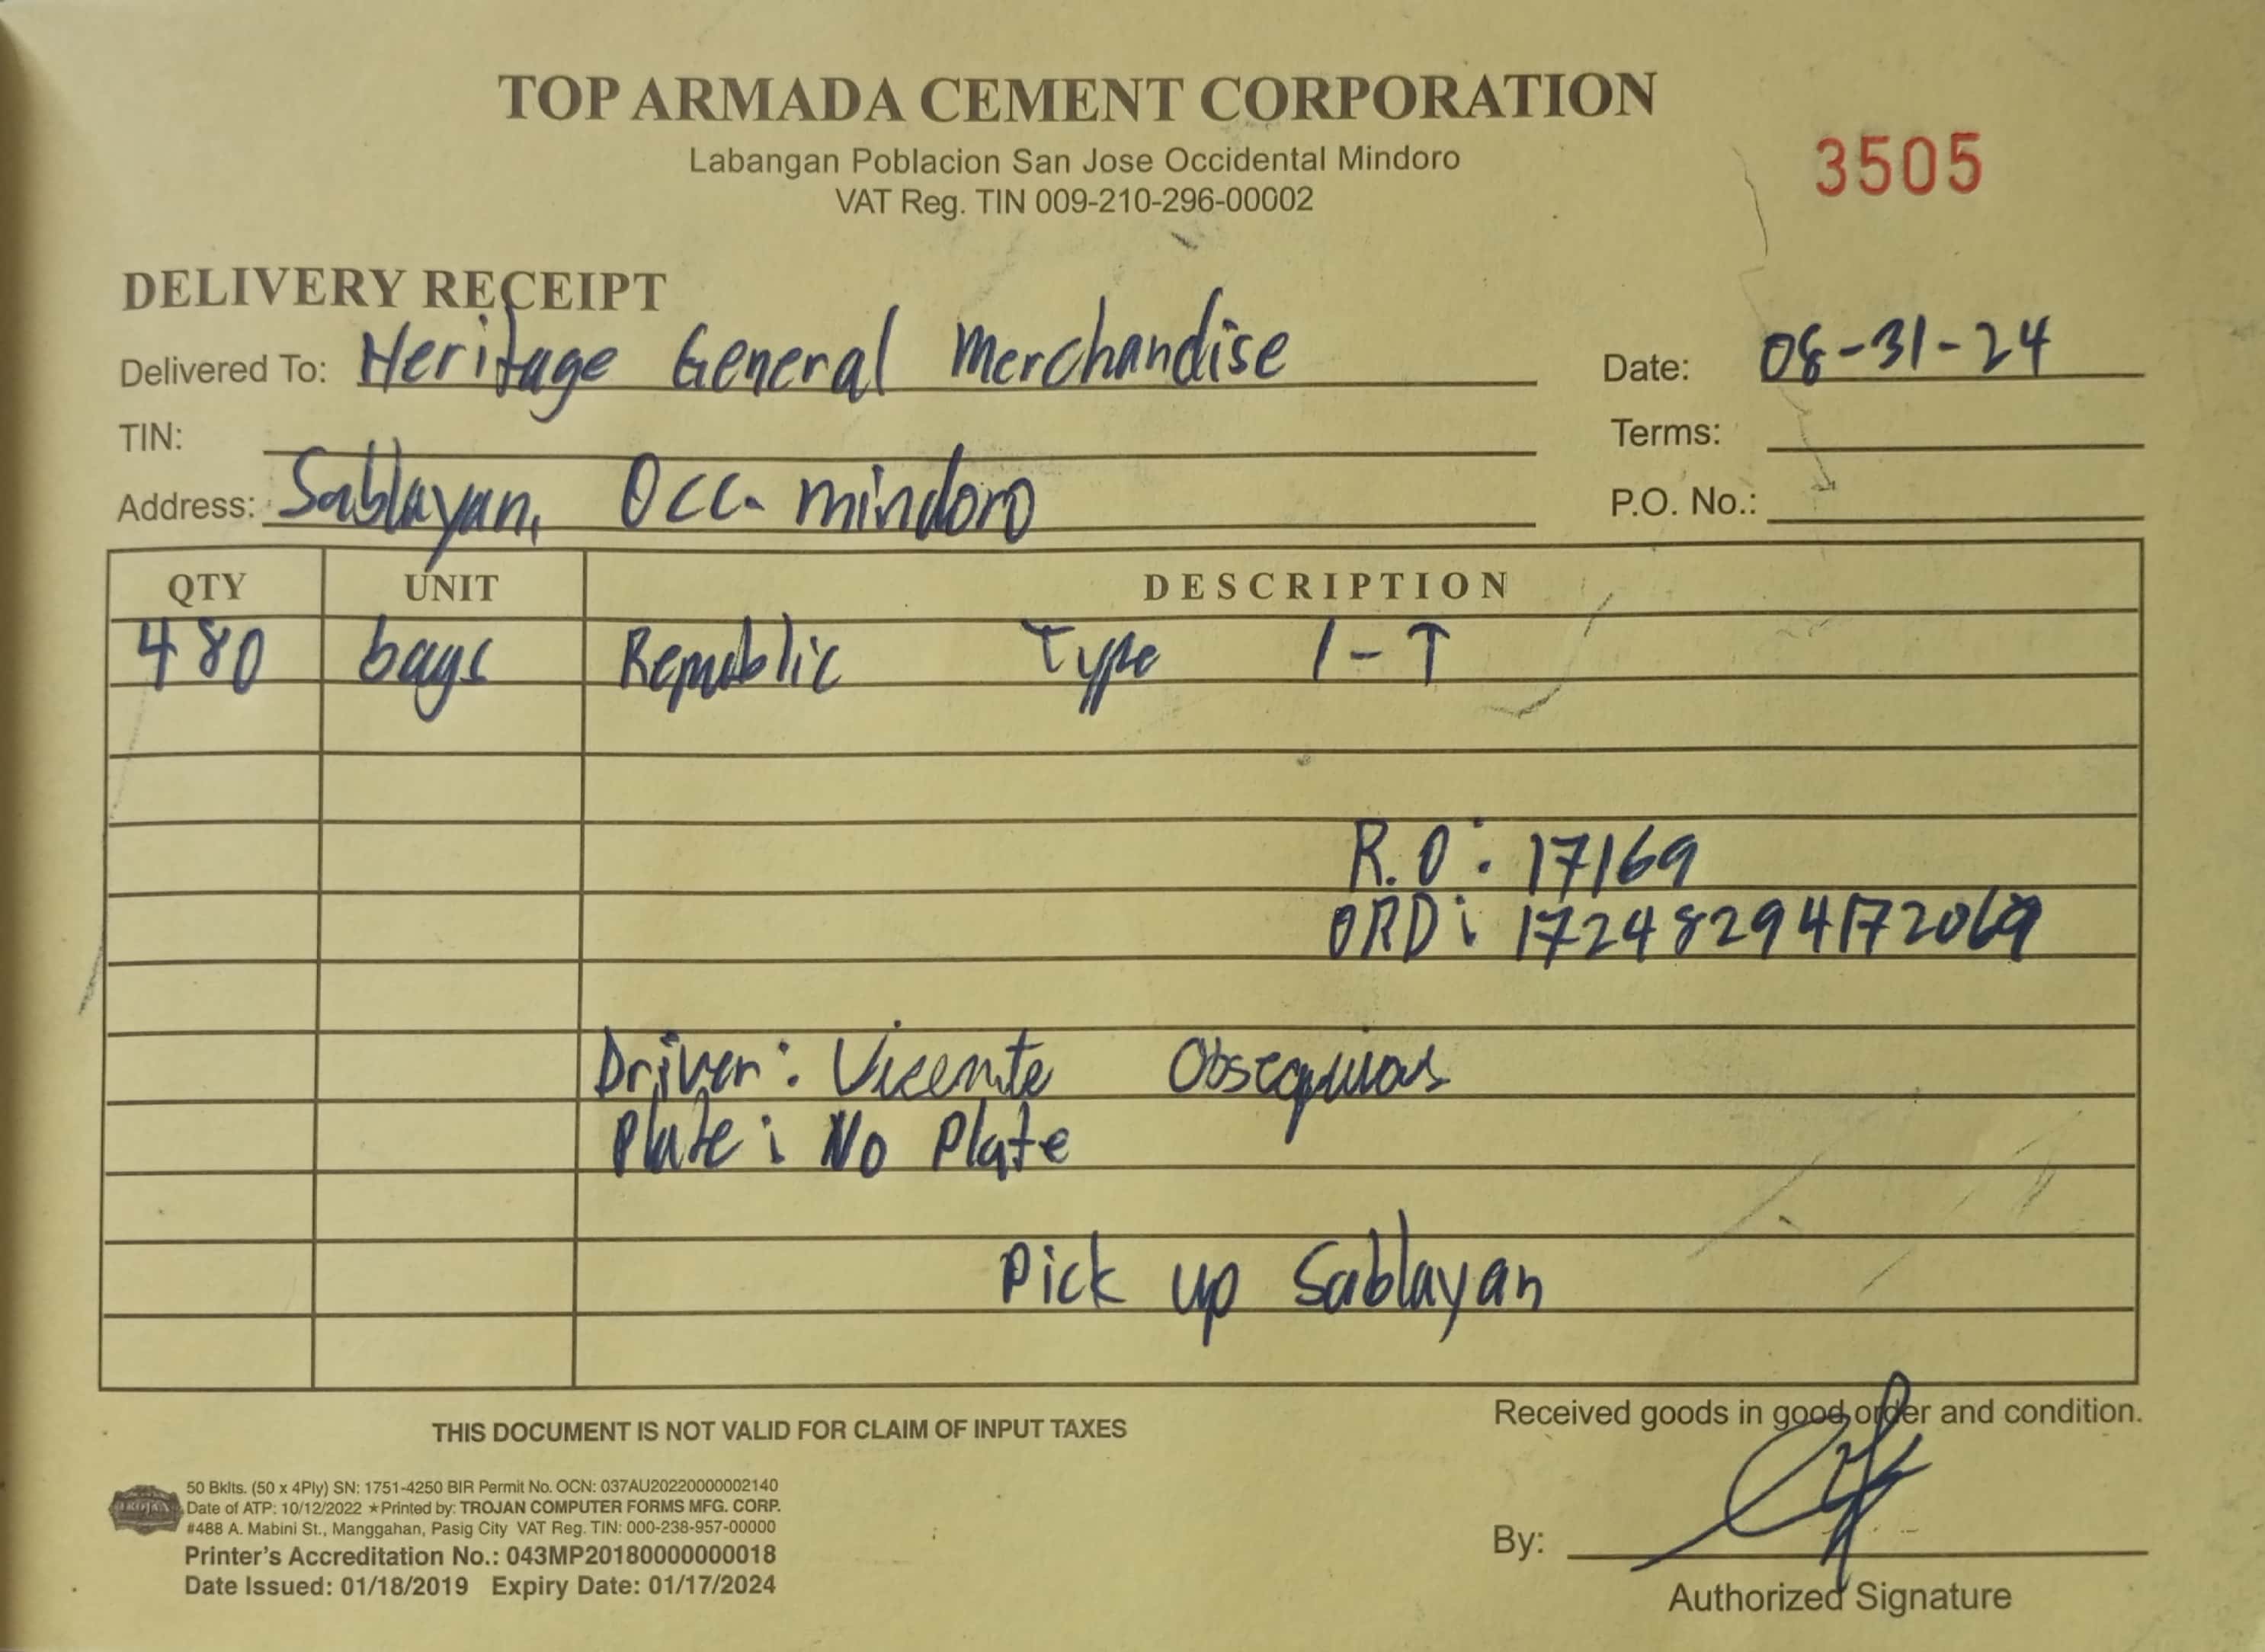 TOP ARMADA CEMENT CORPORATION
Labangan Poblacion San Jose Occidental Mindoro
VAT Reg. TIN 009-210-296-00002
3505
DELIVERY RECEIPT
Delivered To: Heritage General Merchandise
Date: 08-31-24
TIN:
Terms:
Address: Sablayan, Occ. mindoro
P.O. No.:
QTY UNIT DESCRIPTION
480 bags Republic Type 1-T
R.O: 17169
ORD: 17248294172069
Driver: Vicente Obsequious
Plate: No Plate
Pick up Sablayan
THIS DOCUMENT IS NOT VALID FOR CLAIM OF INPUT TAXES
Received goods in good order and condition.
50 Bklts. (50 x 4Ply) SN: 1751-4250 BIR Permit No. OCN: 037AU20220000002140
Date of ATP: 10/12/2022 ★Printed by: TROJAN COMPUTER FORMS MFG. CORP.
#488 A. Mabini St., Manggahan, Pasig City VAT Reg. TIN: 000-238-957-00000
Printer's Accreditation No.: 043MP20180000000018
Date Issued: 01/18/2019 Expiry Date: 01/17/2024
By:
Authorized Signature